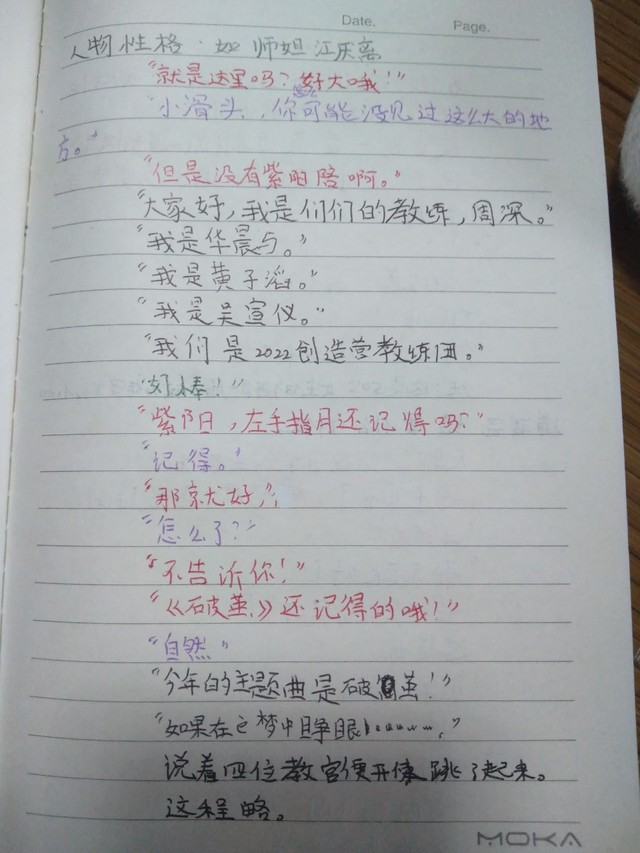 Date. Page.
人物性格：如 师姐 江厌离
"就是这里吗？好大哦！"
"小滑头，你可能没见过这么大的地
方。"
"但是没有紫阳陪啊。"
"大家好，我是们们的教练，周深。"
"我是华晨与。"
"我是黄子滔。"
"我是吴宣仪。"
"我们是2022创造营教练团。"
"好棒！"
"紫阳，左手指月还记得吗？"
"记得。"
"那就好，"
"怎么了？"
"不告诉你！"
"《破茧》还记得的哦！"
"自然"
"今年的主题曲是破茧！"
"如果在这梦中睁眼
说着四位教官便开始跳了起来。
这程略。
MOKA